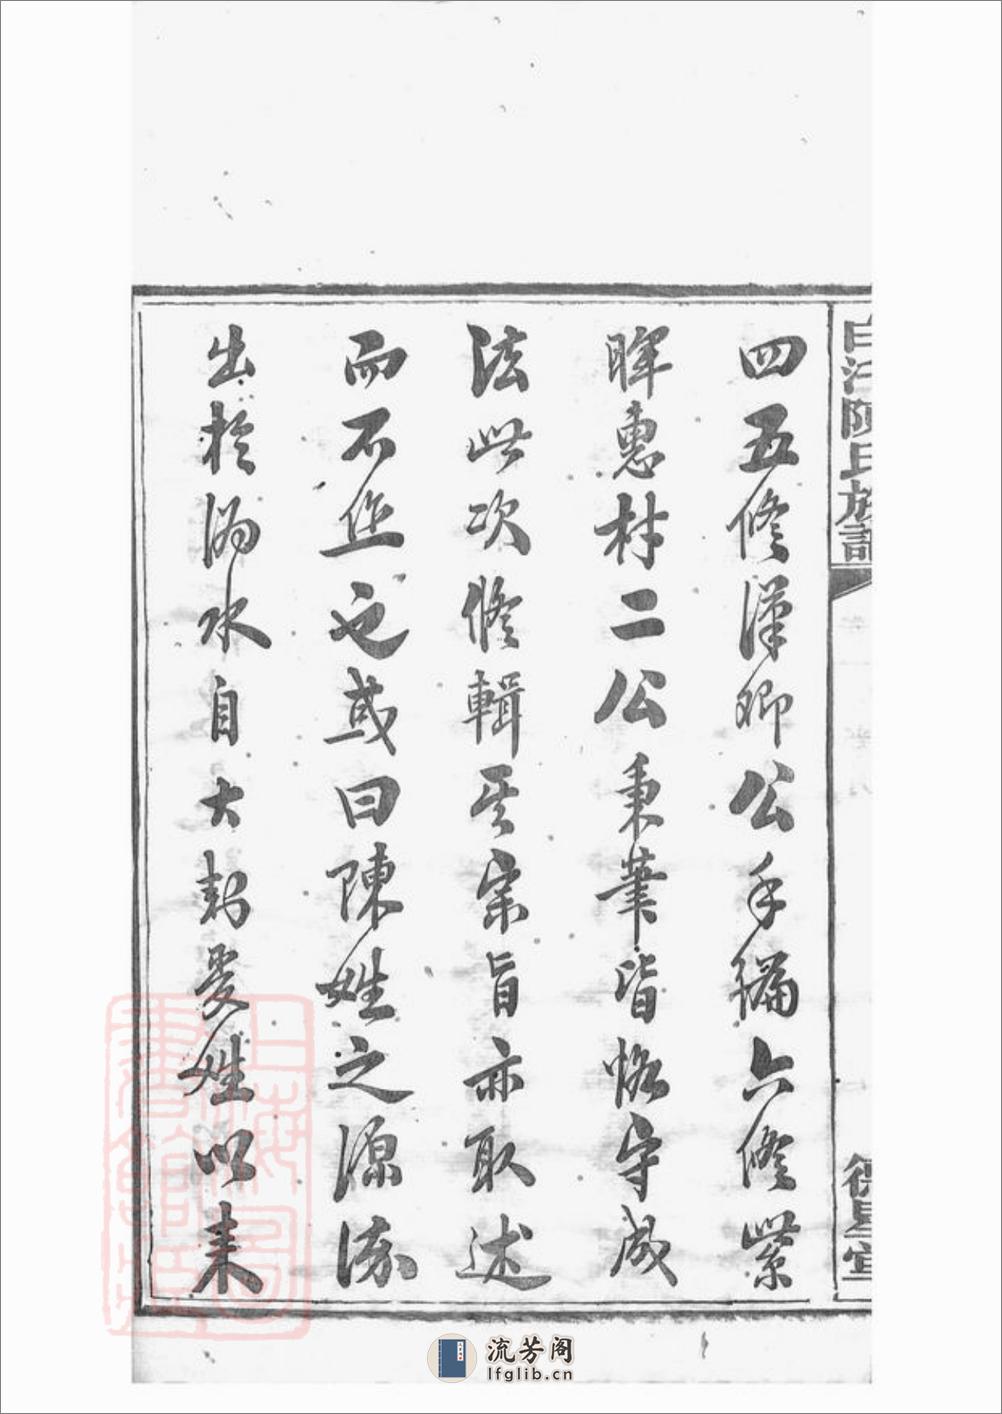 四五修漢卿公手編六修紫
暉惠村二公秉筆皆恪守成
法此次修輯其宗旨亦取述
而不作之或曰陳姓之源流
出於溈水自大封受姓以来
陳氏族譜
上海圖書館藏
流芳阁
lfglib.cn